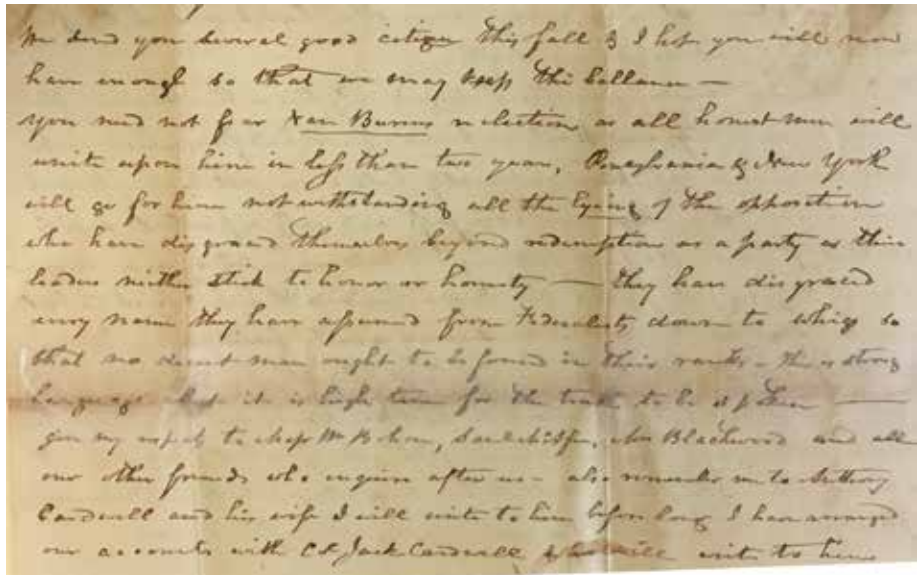 We send you several good citizen this fall & I hope you will now
have enough so that we may keep the ballance —
you need not fear Van Burens reelection as all honest men will
unite upon him in less than two years, Pennsylvania & New York
will go for him notwithstanding all the lying of the opposition
who have disgraced themselves beyond redemption as a party as their
leaders neither stick to honor or honesty — they have disgraced
every name they have assumed from Federalists down to whigs so
that no decent man ought to be found in their ranks - this is strong
language but it is high time for the truth to be spoken —
give my respects to Mr Blackwood and all
our other friends who enquire after us - also remember me to Anthony
Cardwell and his wife I will write to him before long I have arranged
our accounts with Jack Cardwell & will write to him